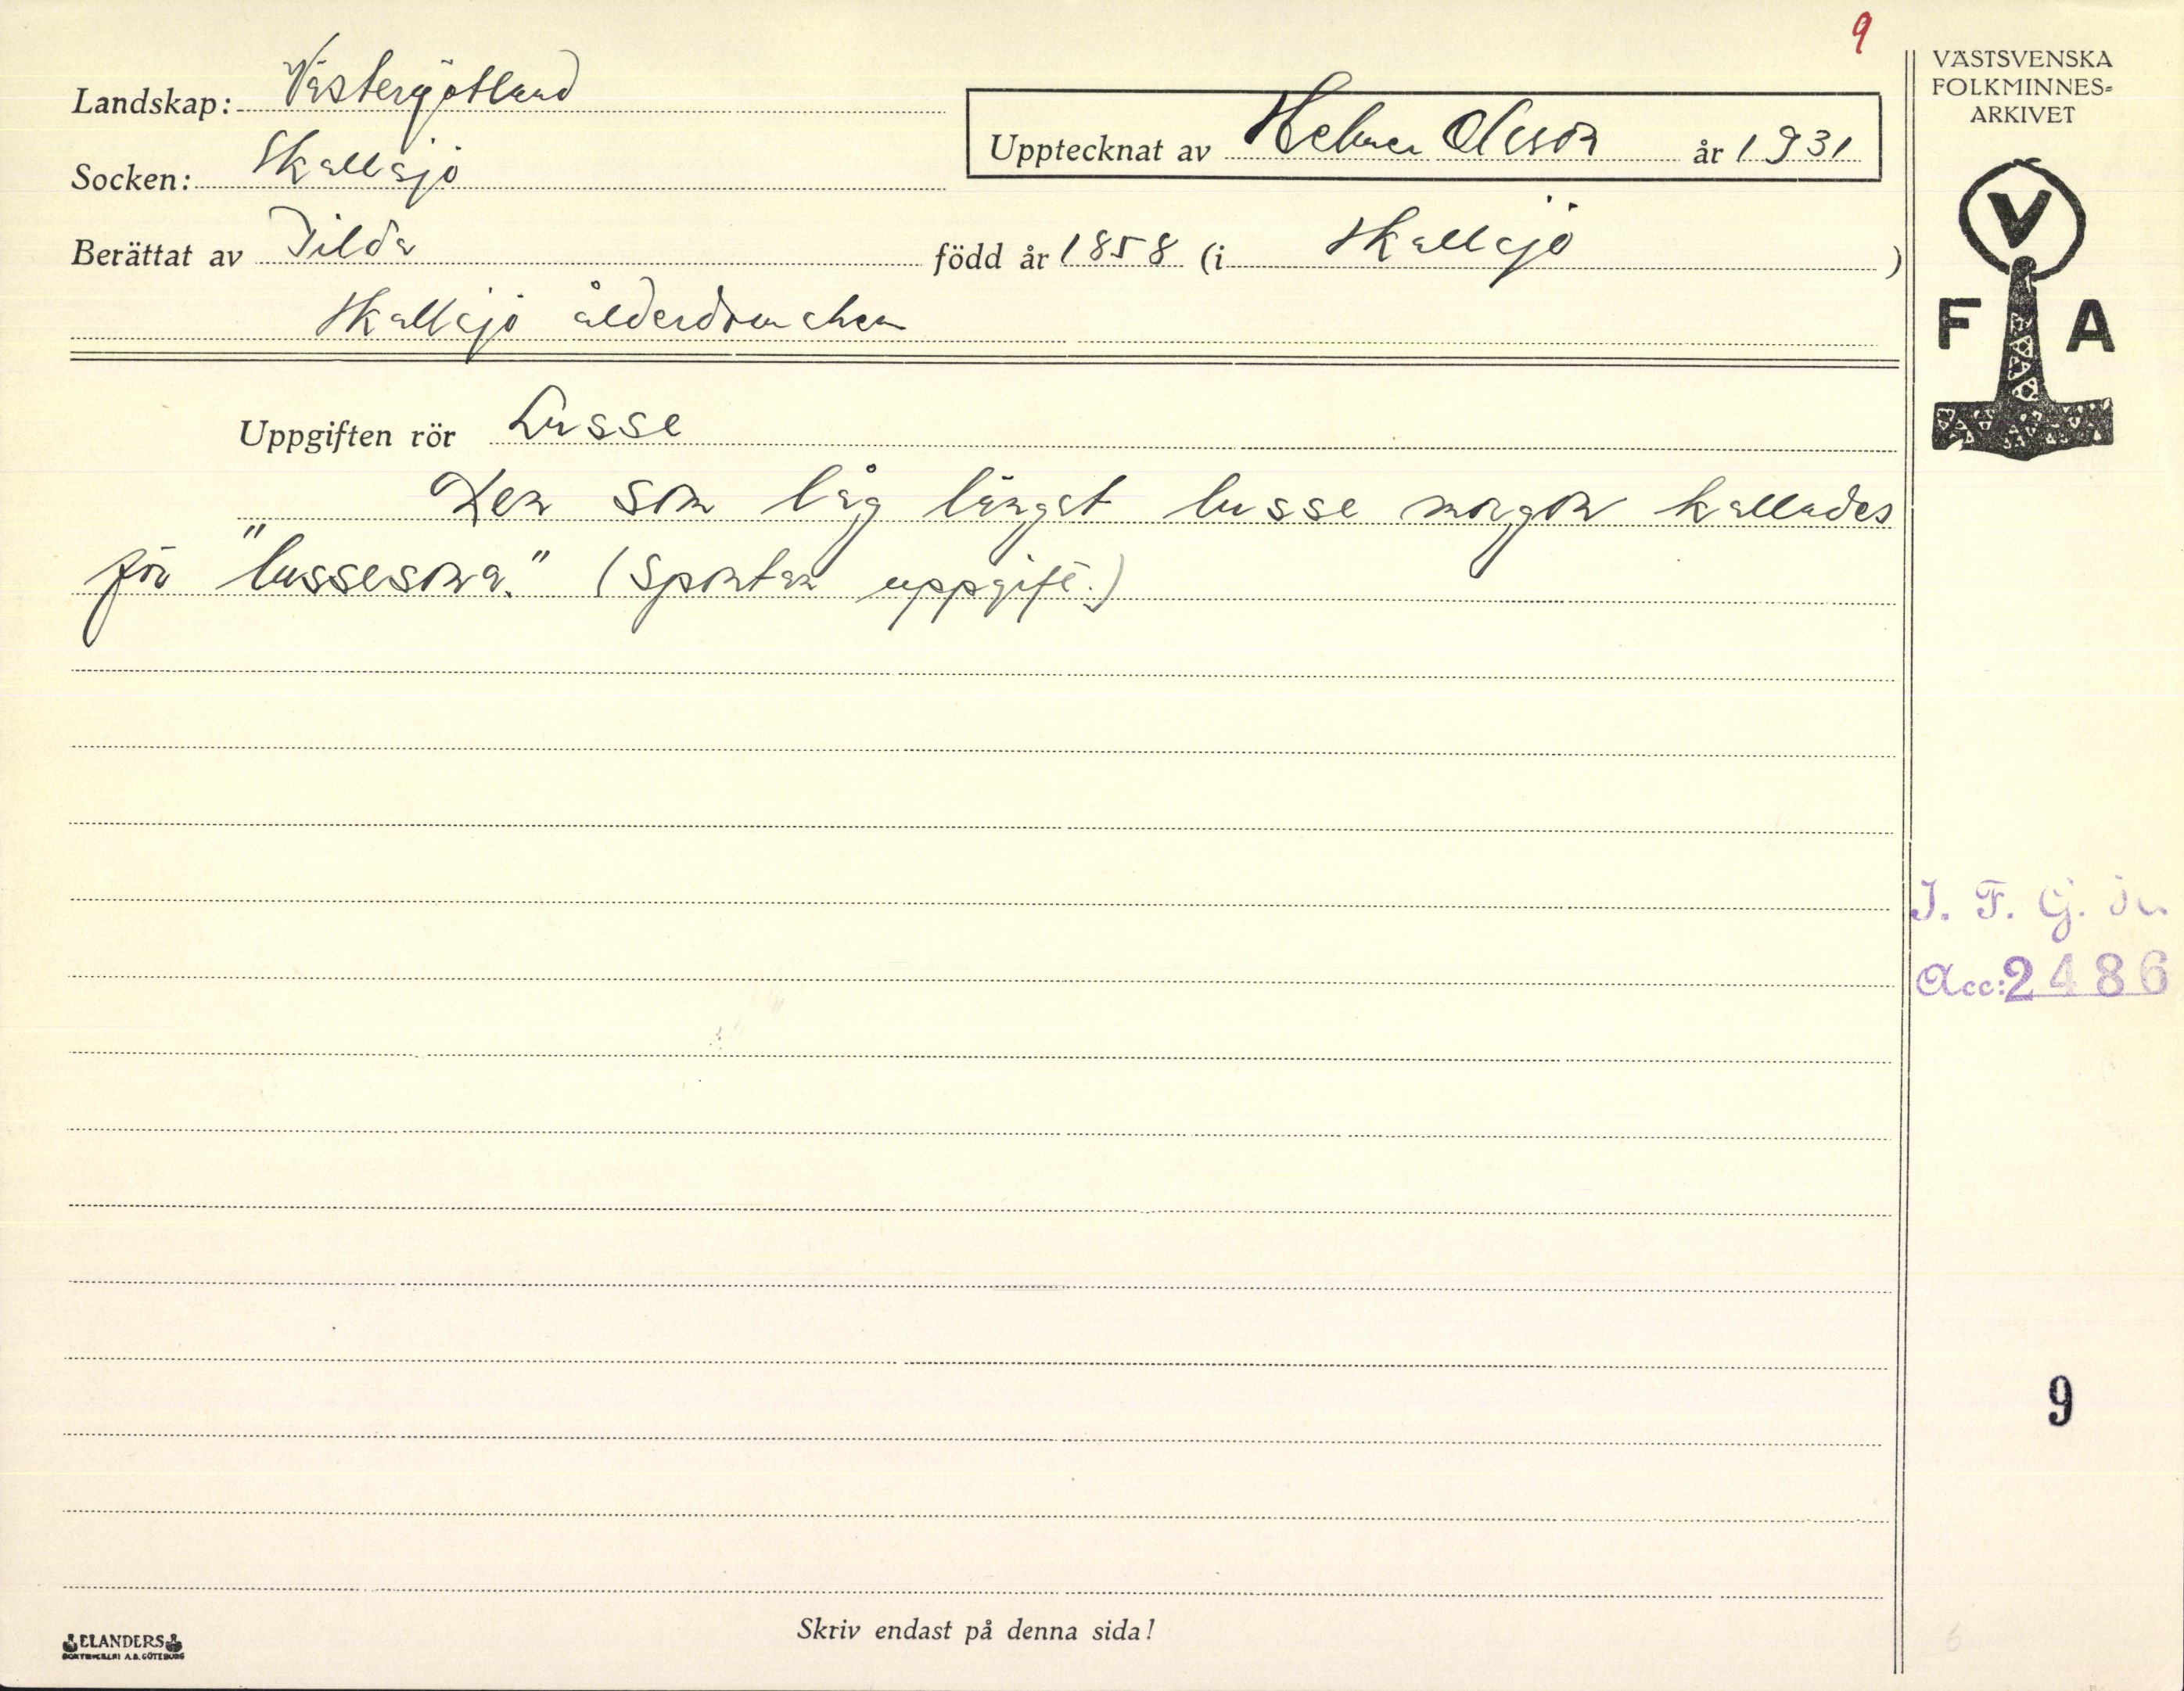 9
VÄSTSVENSKA
FOLKMINNES=
ARKIVET
Landskap: Västergötland
Upptecknat av Helmer Olsson år 1931
Socken: Skallsjö
Berättat av Tilda född år 1858 (i Skallsjö)
Skallsjö ålderdomshem
V
F A
Uppgiften rör Lusse
Den som låg längst lusse morgon kallades
för "lussesona." (Spontan uppgift.)
I. F. G.
Acc: 2486
9
Skriv endast på denna sida!
ELANDERS
BOKTRYCKERI A.B. GÖTEBORG
6